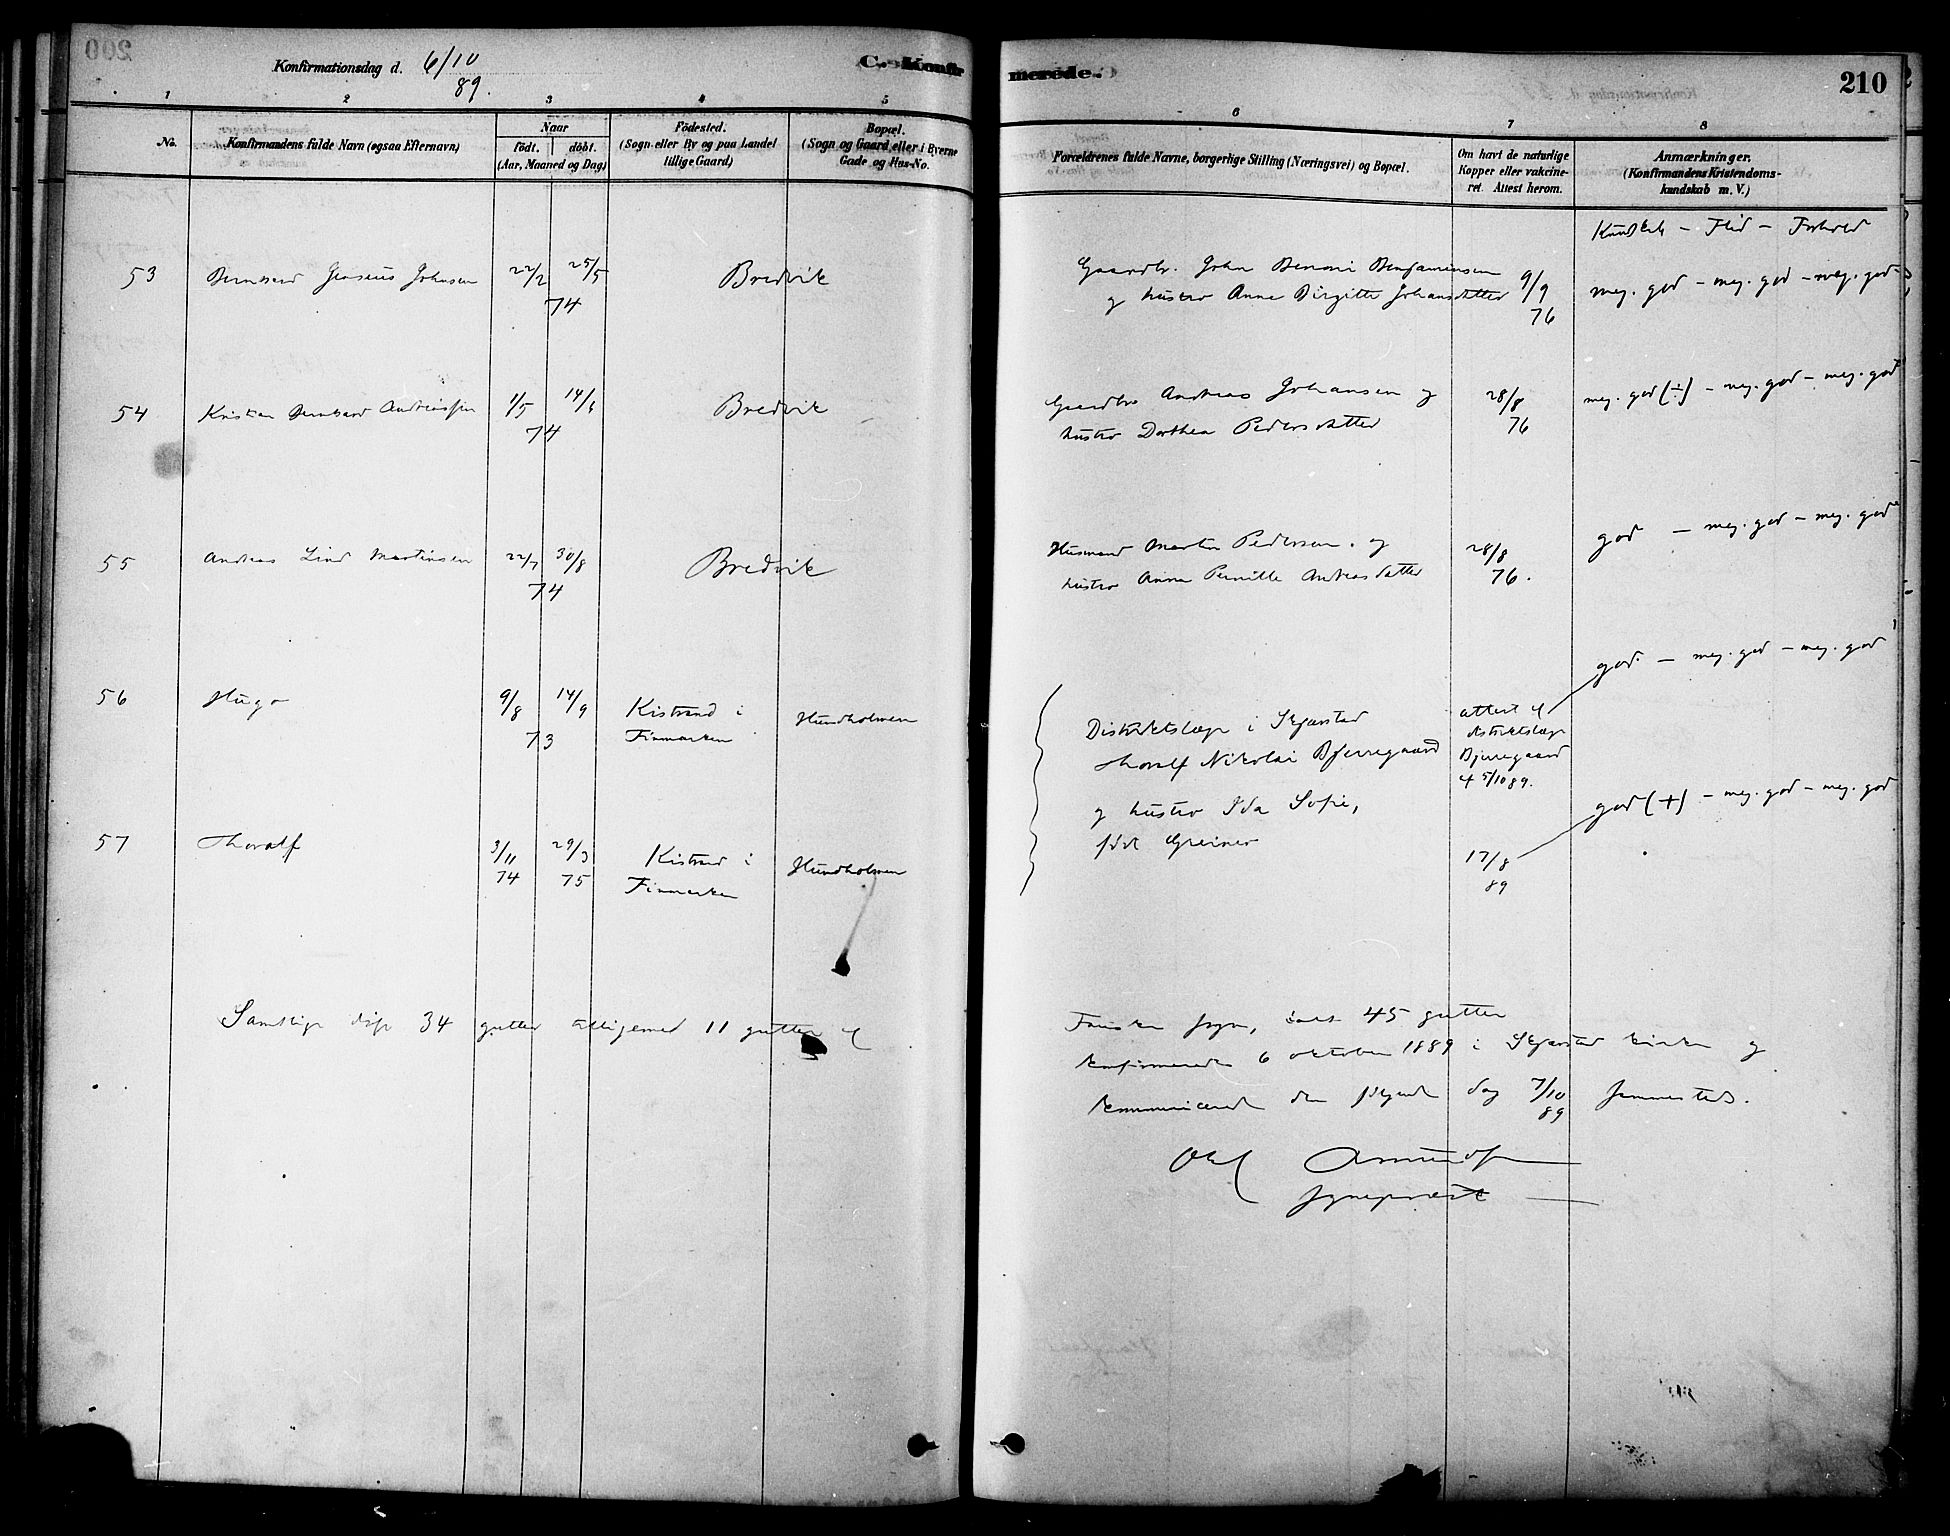 Konfirmationsdag d. 6/10 89.
C. Konfirmerede.
210
1 2 3 4 5 6 7 8
No.
Konfirmandens fulde Navn (ogsaa Efternavn)
Naar
födt. döbt.
(Aar, Maaned og Dag)
Födested.
(Sogn eller By og paa Landet
tillige Gaard)
Bopæl.
(Sogn og Gaard, eller i Byerne
Gade og Hus-No.
Forældrenes fulde Navne, borgerlige Stilling (Næringsvei) og Bopæl.
Om havt de naturlige
Kopper eller vakcine-
ret. Attest herom.
Anmærkninger.
(Konfirmandens Kristendoms-
kundskab m. V.)
Kundsk - Flid - Forhold
53 Bernhard Jensius Johnsen 22/2 25/5 74 Bredvik
Gaardbr. John Benoni Benjaminsen
og hustro Anne Birgitte Johansdatter
9/9 76
meg. god - meg. god - meg. god
54 Kristian Bernhard Andreassen 1/5 14/6 74 Bredvik
Gaardbr Andreas Johansen og
hustro Dorthea Pedersdatter
28/8 76
meg. god (÷) - meg. god - meg. god
55 Andreas Lind Martinsen 22/7 30/8 74 Bredvik
Husmand Martin Pedersen og
hustro Anna Pernille Andreasdatter
28/8 76.
god - meg. god - meg. god
56 Hugo 9/8 14/9 73 Kistrand i Finmarken Hundholmen
god - meg. god - meg. god
Distriktslæge i Skjærstad
Thoralf Nikolai Bjerregaard
og hustro Ida Sofie,
født Greiner
attest af
distriktslæge
Bjerregaard
af 5/10 89.
57 Thoralf 3/11 74 29/3 75 Kistrand i Finmarken Hundholmen
17/8 89
god (+) - meg. god - meg. god
Samtlige disse 34 gutter tilligemed 11 gutter af
Fauske sogn, ialt 45 gutter
konfirmerede 6 oktober 1889 i Skjærstad kirke og
kommunicerede den følgende dag 7/10 89 sammesteds.
sognepræst